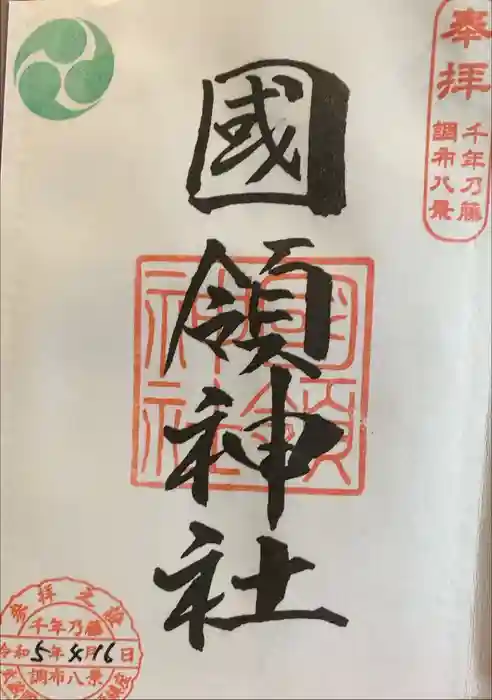 奉拝
千年乃藤
調布八景
國領神社
國領
神社
参拝之証
千年乃藤
令和5年4月16日
調布八景